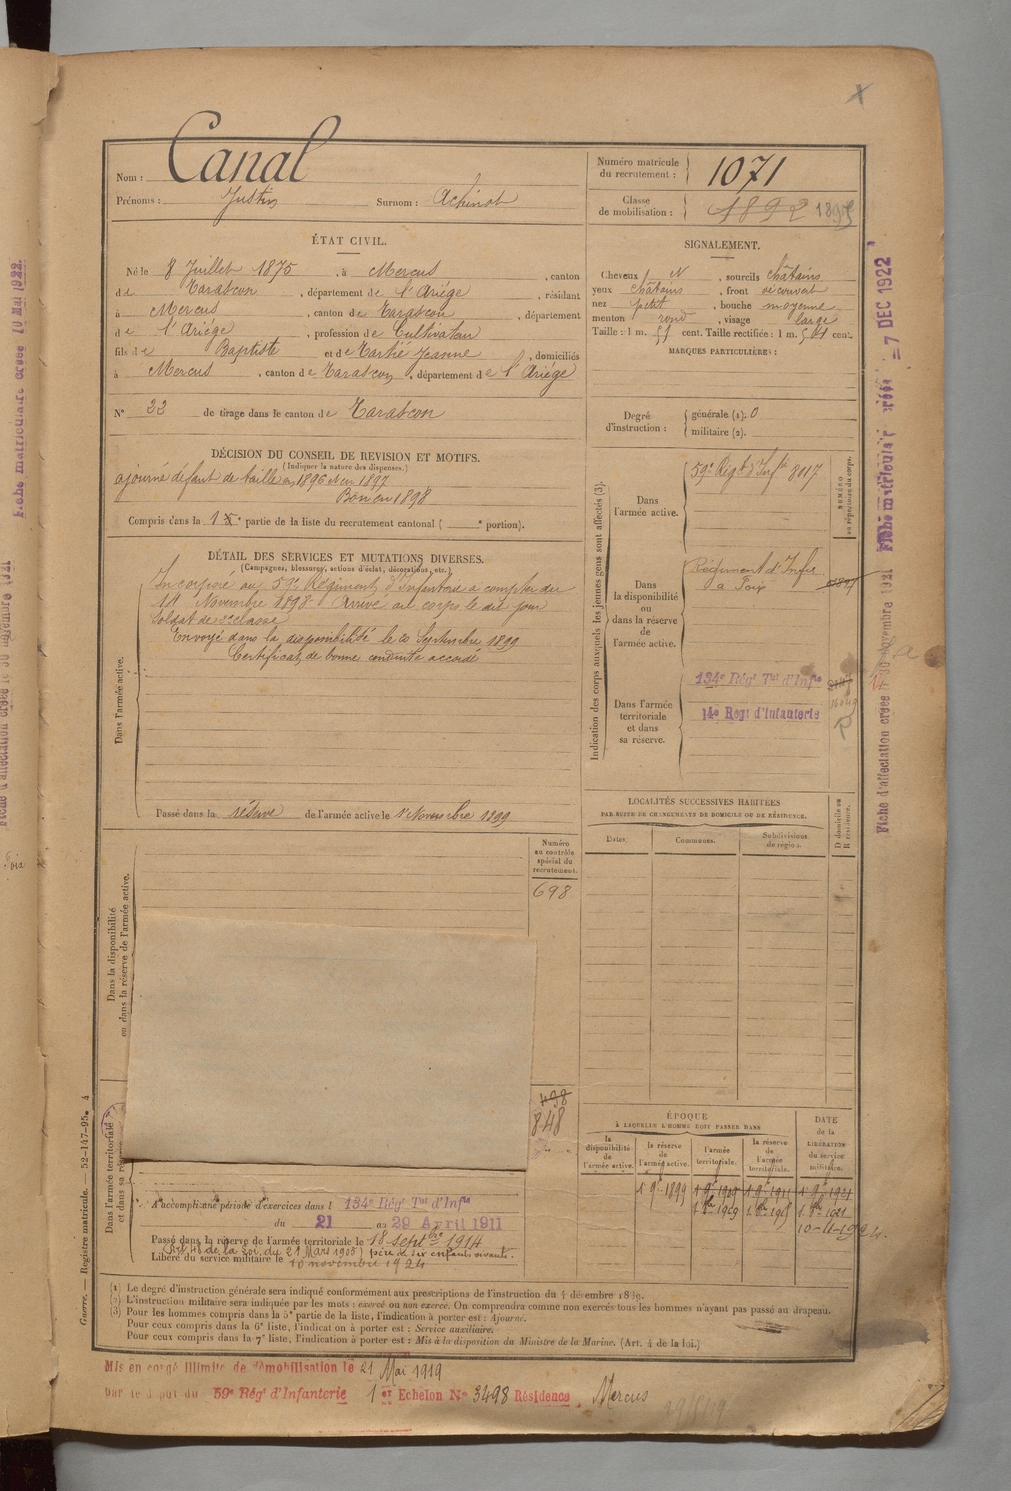 Nom : Canal
Prénoms : Justin Surnom : Achinot
Numéro matricule du recrutement : 1071
Classe de mobilisation : 1892 1895
ÉTAT CIVIL.
Né le 8 Juillet 1875, à Mercus, canton
de Tarascon, département de l'Ariége, résidant
à Mercus, canton de Tarascon, département
de l'Ariége, profession de Cultivateur
fils de Baptiste et de Jeanne, domiciliés
à Mercus, canton de Tarascon, département de l'Ariége
N° 22 de tirage dans le canton de Tarascon
SIGNALEMENT.
Cheveux N, sourcils châtains
yeux châtains, front découvert
nez petit, bouche moyenne
menton rond, visage large
Taille : 1 m. 51 cent. Taille rectifiée : 1 m. cent.
MARQUES PARTICULIÈRES :
Degré d'instruction : générale (1). 0
militaire (2).
DÉCISION DU CONSEIL DE REVISION ET MOTIFS.
(Indiquer la nature des dispenses.)
ajourné défaut de taille en 1896 et en 1897
Bon en 1898
Compris dans la 1e partie de la liste du recrutement cantonal ( e portion).
DÉTAIL DES SERVICES ET MUTATIONS DIVERSES.
(Campagnes, blessures, actions d'éclat, décorations, etc.)
Dans l'armée active.
Incorporé au 59e Régiment d'Infanterie à compter du
14 Novembre 1898 Arrivé au corps le dit jour
Soldat de 2e classe
Envoyé dans la disponibilité le 20 Septembre 1899
Certificat de bonne conduite accordé
Passé dans la réserve de l'armée active le 1er Novembre 1899
Indication des corps auxquels les jeunes gens sont affectés (3).
NUMÉRO au répertoire du corps.
Dans l'armée active.
59e Régt d'Infie 8017
Dans la disponibilité ou dans la réserve de l'armée active.
Régiment d'Infie
a Foix
Dans l'armée territoriale et dans sa réserve.
134e Régt Tal d'Infie
14e Régt d'Infanterie
R
LOCALITÉS SUCCESSIVES HABITÉES
PAR SUITE DE CHANGEMENTS DE DOMICILE OU DE RÉSIDENCE.
Dates. Communes. Subdivisions de région. D domicile ou R résidence.
Dans la disponibilité ou dans la réserve de l'armée active.
Numéro au contrôle spécial du recrutement.
698
498
848
Dans l'armée territoriale
et dans sa
A accompli une période d'exercices dans l 134e Régt Tal d'Infie
du 21 au 29 Avril 1911
Passé dans la réserve de l'armée territoriale le 18 septbre 1914
(Art. 48 de la loi du 21 Mars 1905) père de six enfants vivants.
Libéré du service militaire le 10 novembre 1924
ÉPOQUE
À LAQUELLE L'HOMME DOIT PASSER DANS
la disponibilité de l'armée active.
la réserve de l'armée active.
l'armée territoriale.
la réserve de l'armée territoriale.
DATE de la LIBÉRATION du service militaire.
1 9e 1899
10-11-1924.
(1) Le degré d'instruction générale sera indiqué conformément aux prescriptions de l'instruction du 4 décembre 1889.
(2) L'instruction militaire sera indiquée par les mots : exercé ou non exercé. On comprendra comme non exercés tous les hommes n'ayant pas passé au drapeau.
(3) Pour les hommes compris dans la 5e partie de la liste, l'indication à porter est : Ajourné.
Pour ceux compris dans la 6e liste, l'indication à porter est : Service auxiliaire.
Pour ceux compris dans la 7e liste, l'indication à porter est : Mis à la disposition du Ministre de la Marine. (Art. 4 de la loi.)
Mis en congé illimité de démobilisation le 21 Mai 1919
par le dépôt du 59e Régt d'Infanterie 1er Echelon N° 3498 Résidence, Mercus
Guerre. — Registre matricule. — 52-147-95. 4
Fiche matriculaire créée = 7 DEC 1922
Fiche d'affectation créée le 30 novembre 1921
Fiche matriculaire créée 10 Mai 1922.
Foix